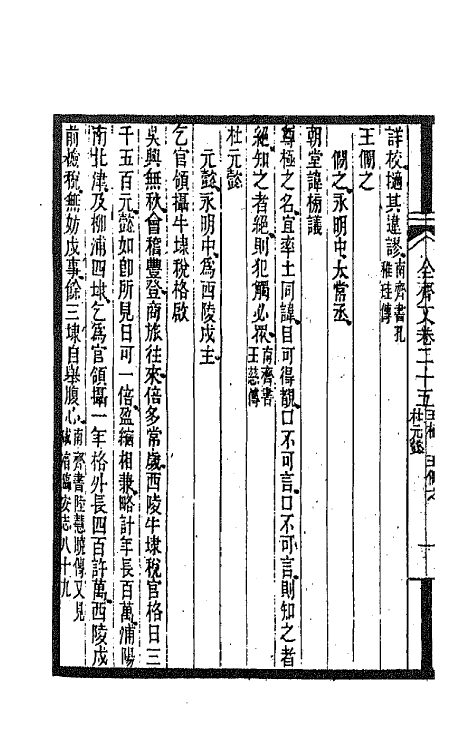 全齊文卷二十五
詳校擿其違謬 南齊書孔稚珪傳
王僩之
僩之永明中太常丞
朝堂諱榜議
尊極之名宜率土同諱目可得覩口不可言口不可言則知之者
絕知之者絕則犯觸必眾 南齊書王慈傳
杜元懿
元懿永明中爲西陵戍主
乞官領攝牛埭稅格啟
吳興無秋會稽豐登商旅往來倍多常歲西陵牛埭稅官格日三
千五百元懿如卽所見日可一倍盈縮相兼略計年長百萬浦陽
南北津及柳浦四埭乞爲官領攝一年格外長四百許萬西陵戍
前檢稅無妨戍事餘三埭自舉腹心 南齊書陸慧曉傳又見咸淳臨安志八十九